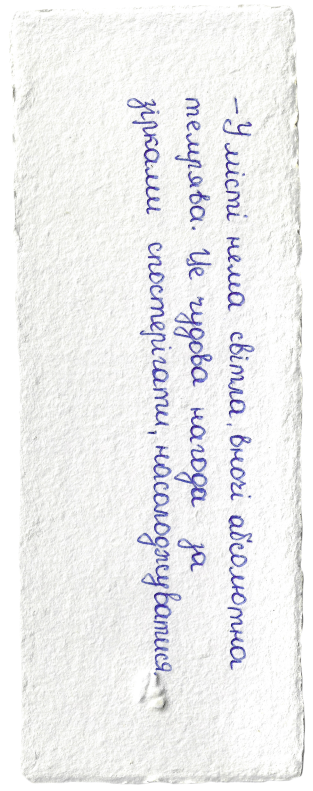 – У місті нема світла, вночі абсолютна
темрява. Це чудова нагода за
зірками спостерігати, насолоджуватися.